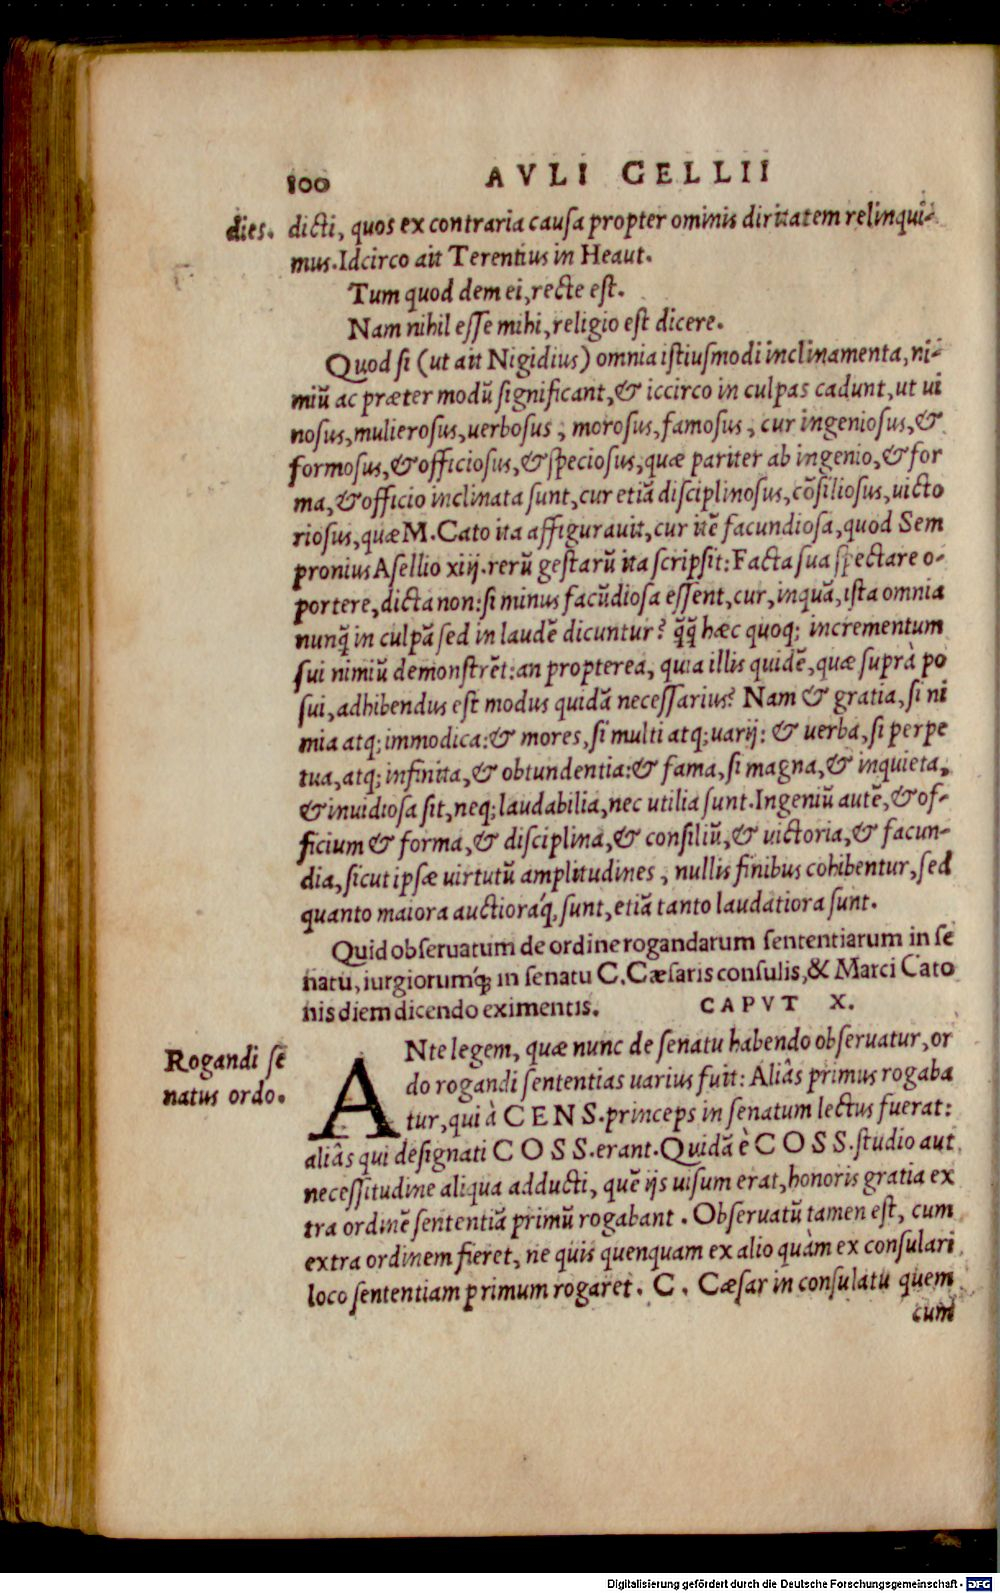 100 AVLI GELLII
dies. dicti, quos ex contraria causa propter ominis diritatem relinqui-
mus. Idcirco ait Terentius in Heaut.
Tum quod dem ei, recte est.
Nam nihil esse mihi, religio est dicere.
Quod si (ut ait Nigidius) omnia istiusmodi inclinamenta, ni-
miū ac præter modū significant, & iccirco in culpas cadunt, ut ui
nosus, mulierosus, uerbosus, morosus, famosus, cur ingeniosus, &
formosus, & officiosus, & speciosus, quæ pariter ab ingenio, & for
ma, & officio inclinata sunt, cur etiā disciplinosus, cōsiliosus, uicto
riosus, quæ M. Cato ita affigurauit, cur itē facundiosa, quod Sem
pronius Asellio xiij. rerū gestarū ita scripsit: Facta sua spectare o-
portere, dicta non: si minus facūdiosa essent, cur, inquā, ista omnia
nunq̄ in culpā sed in laudē dicuntur? q̄q̄ hæc quoq; incrementum
sui nimiū demonstrēt: an propterea, quia illis quidē, quæ suprà po
sui, adhibendus est modus quidā necessarius? Nam & gratia, si ni
mia atq; immodica: & mores, si multi atq; uarij: & uerba, si perpe
tua, atq; infinita, & obtundentia: & fama, si magna, & inquieta,
& inuidiosa sit, neq; laudabilia, nec utilia sunt. Ingeniū autē, & of-
ficium & forma, & disciplina, & consiliū, & uictoria, & facun-
dia, sicut ipsæ uirtutū amplitudines, nullis finibus cohibentur, sed
quanto maiora auctioraq́; sunt, etiā tanto laudatiora sunt.
Quid obseruatum de ordine rogandarum sententiarum in se
natu, iurgiorumq́; in senatu C. Cæsaris consulis, & Marci Cato
nis diem dicendo eximentis. CAPVT X.
Rogandi sē
natus ordo.
ANte legem, quæ nunc de senatu habendo obseruatur, or
do rogandi sententias uarius fuit: Aliâs primus rogaba
tur, qui à CENS. princeps in senatum lectus fuerat:
aliâs qui designati COSS. erant. Quidā è COSS. studio aut
necessitudine aliqua adducti, quē ijs uisum erat, honoris gratia ex
tra ordinē sententiā primū rogabant. Obseruatū tamen est, cum
extra ordinem fieret, ne quis quenquam ex alio quàm ex consulari
loco sententiam primum rogaret. C. Cæsar in consulatu quem
cum
Digitalisierung gefördert durch die Deutsche Forschungsgemeinschaft - DFG